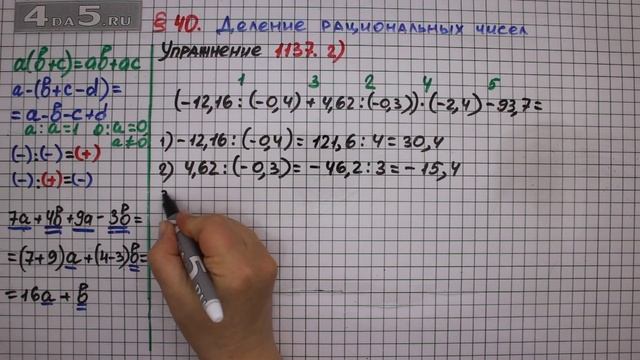 4DA5.RU
§ 40. Деление рациональных чисел
Упражнение 1137. г)
a(b+c)=ab+ac
a-(b+c-d)=
=a-b-c+d
a:a=1 0:a=0
a≠0
(-):(-)=(+)
(-):(+)=(-)
7a+4b+9a-3b=
=(7+9)a+(4-3)b=
=16a+b
1 3 2 4 5
(-12,16:(-0,4)+4,62:(-0,3))·(-2,4)-93,7=
1) -12,16:(-0,4)=121,6:4=30,4
2) 4,62:(-0,3)=-46,2:3=-15,4